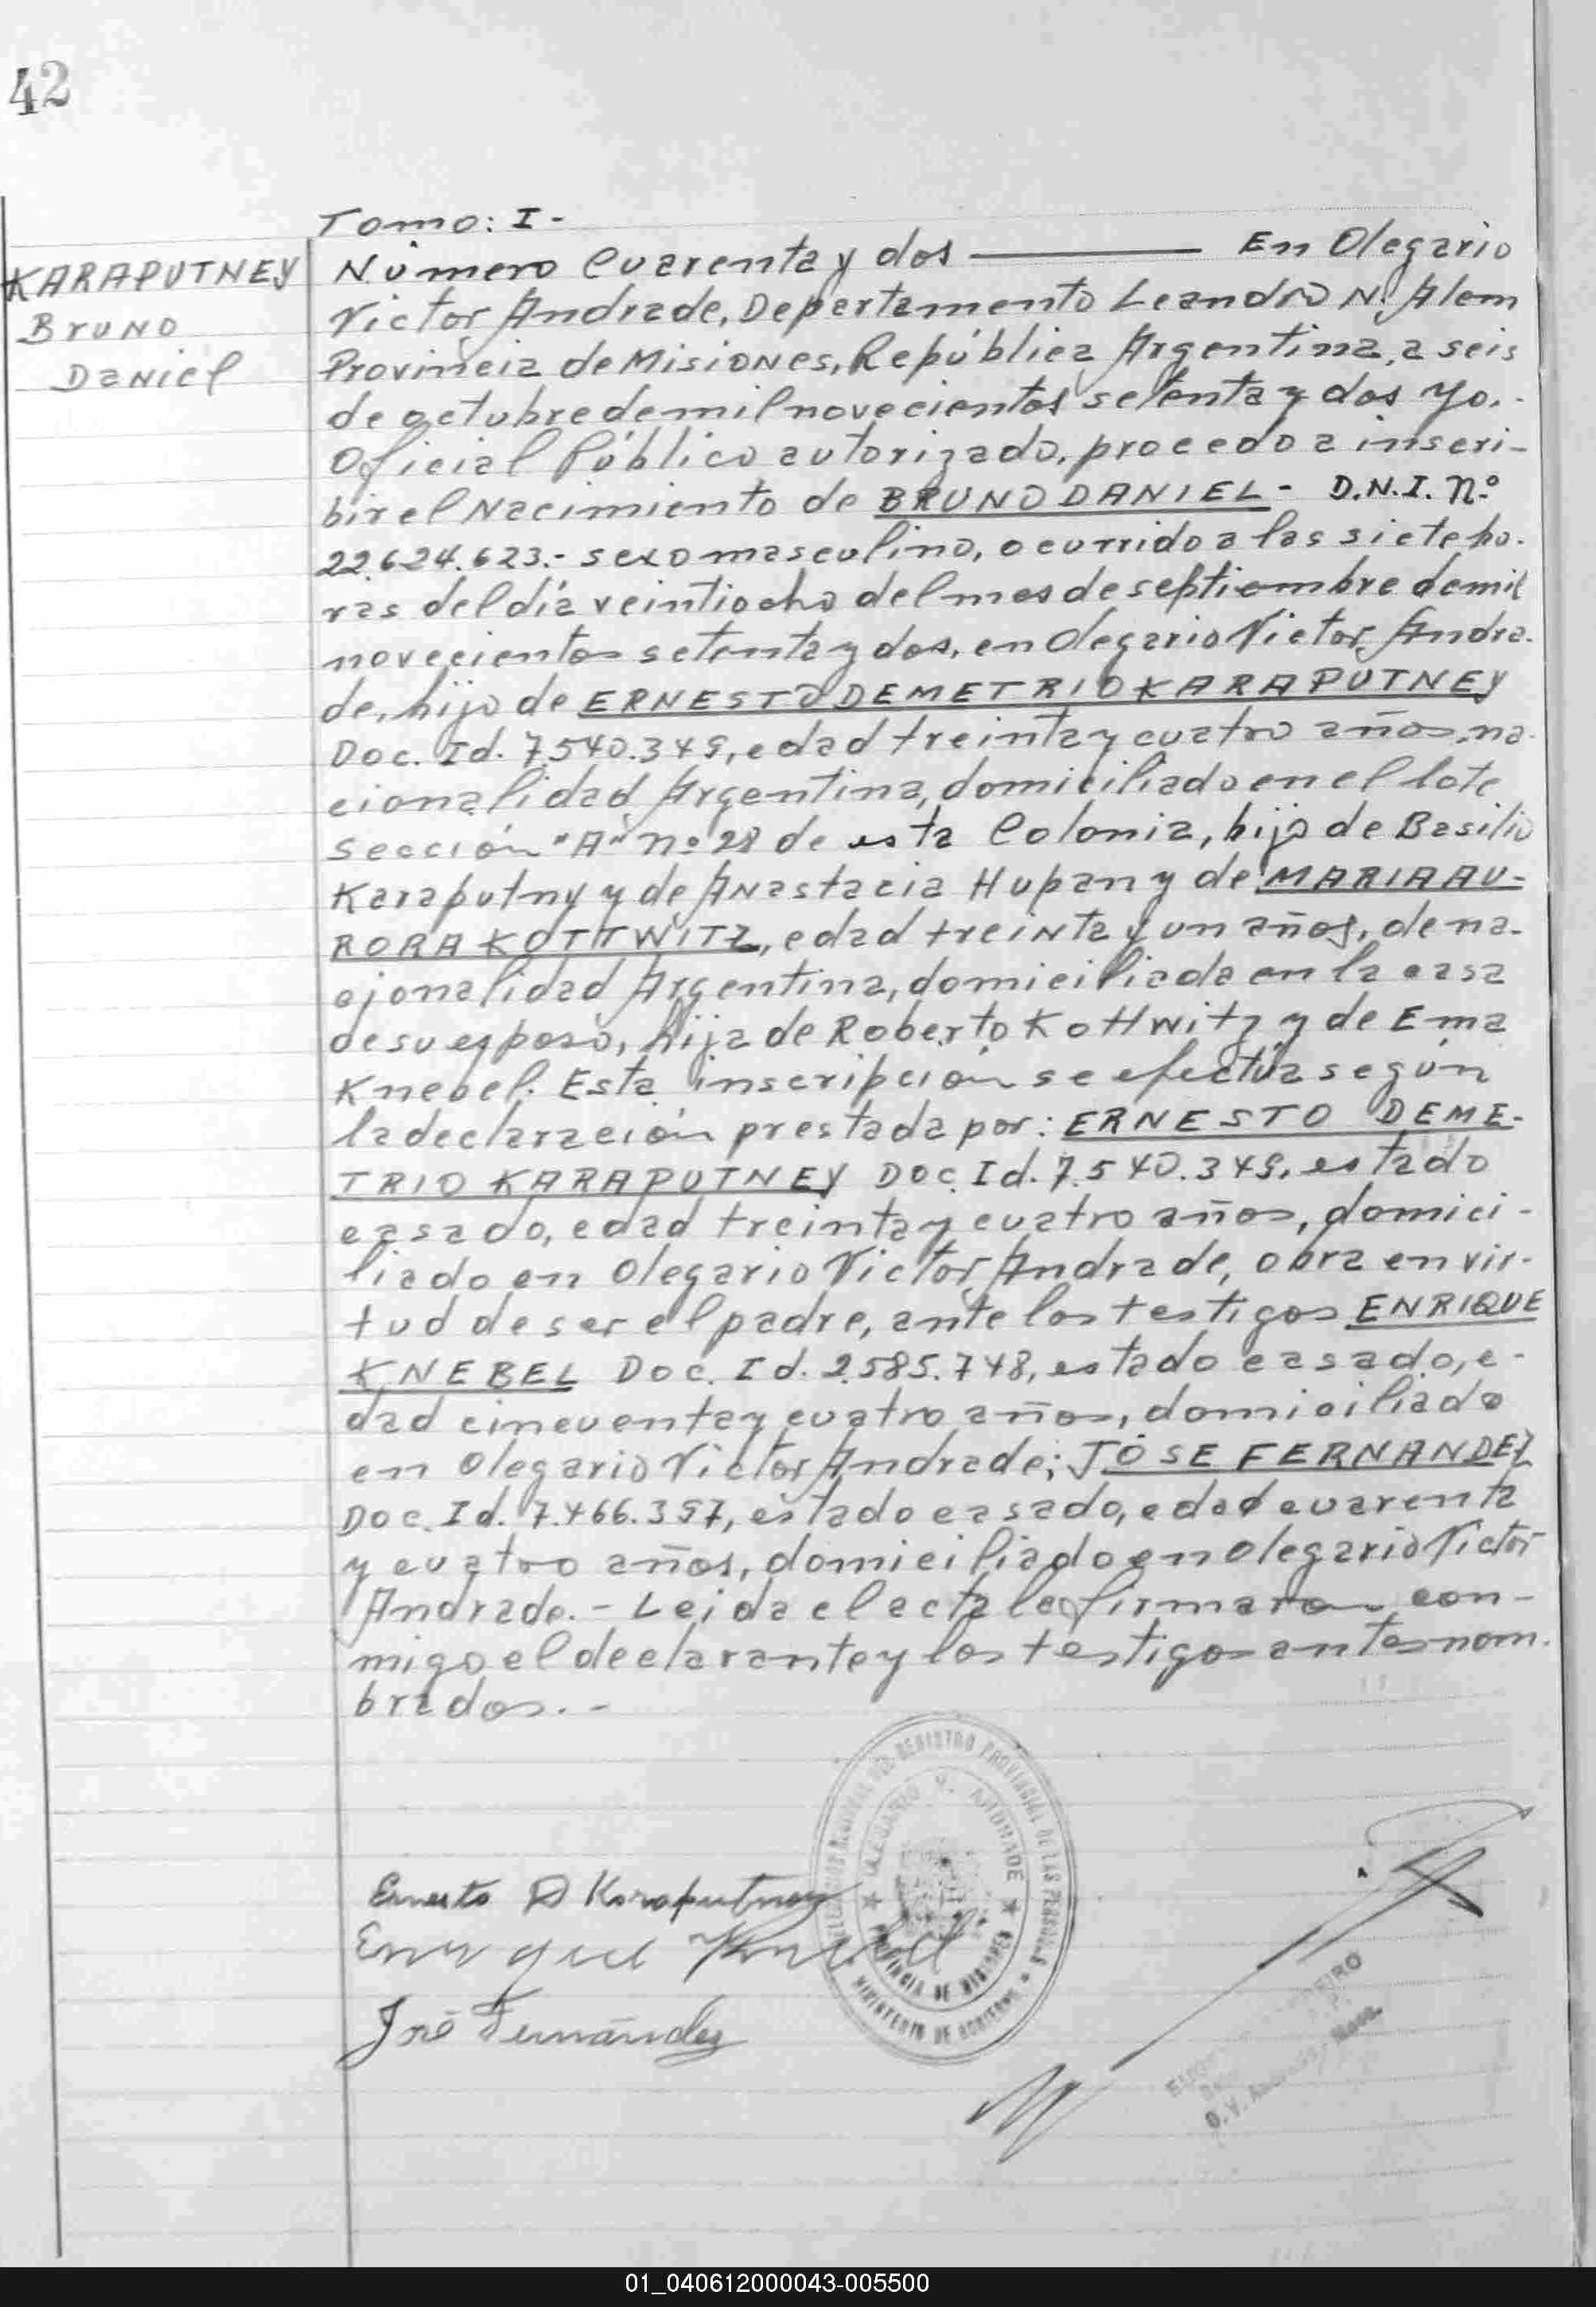 42
Tomo: I -
KARAPUTNEY
Bruno
Daniel
Número Cuarenta y dos ——— En Olegario
Victor Andrade, Departamento Leandro N. Alem
Provincia de Misiones, República Argentina, a seis
de octubre de mil novecientos setenta y dos yo.-
Oficial Público autorizado, procedo a inscri-
bir el Nacimiento de BRUNO DANIEL - D.N.I. Nº
22.624.623.- sexo masculino, ocurrido a las siete ho-
ras del día veintiocho del mes de septiembre de mil
novecientos setenta y dos, en Olegario Victor Andra-
de, hijo de ERNESTO DEMETRIO KARAPUTNEY
Doc. Id. 7.540.349, edad treinta y cuatro años, na-
cionalidad Argentina, domiciliado en el lote
sección "A" Nº 28 de esta Colonia, hijo de Basilio
Karaputny y de Anastacia Hupan y de MARIA AU-
RORA KOTTWITZ, edad treinta y un años, de na-
cionalidad Argentina, domiciliada en la casa
de su esposo, hija de Roberto Kottwitz y de Ema
Knebel. Esta inscripción se efectúa según
la declaración prestada por: ERNESTO DEME-
TRIO KARAPUTNEY Doc. Id. 7.540.349, estado
casado, edad treinta y cuatro años, domici-
liado en Olegario Victor Andrade, obra en vir-
tud de ser el padre, ante los testigos ENRIQUE
KNEBEL Doc. Id. 2.585.748, estado casado, e-
dad cincuenta y cuatro años, domiciliado
en Olegario Victor Andrade; JOSE FERNANDEZ
Doc. Id. 7.466.397, estado casado, edad cuarenta
y cuatro años, domiciliado en Olegario Victor
Andrade. - Leida el acta la firmaron con-
migo el declarante y los testigos antes nom-
brados. -
REGISTRO PROVINCIAL DE LAS PERSONAS
OLEGARIO V. ANDRADE
PROVINCIA DE MISIONES
MINISTERIO DE GOBIERNO
Ernesto D Karaputney
Enrique Knebel
José Fernández
O. V. Andrade
01_040612000043-005500